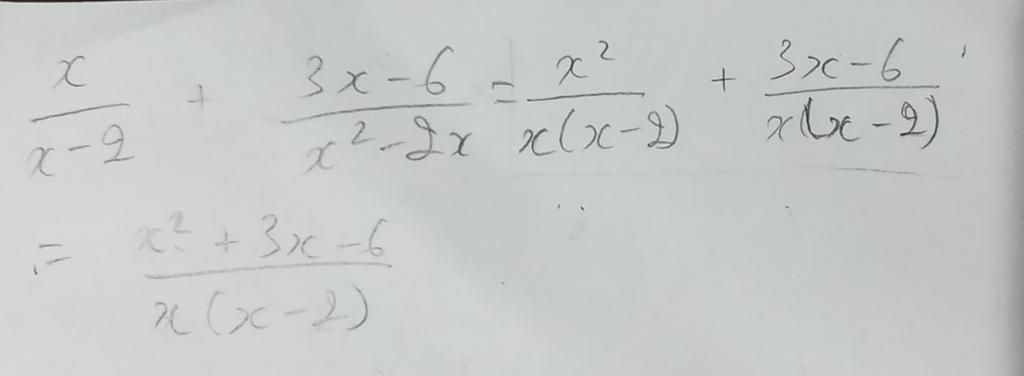 x/(x-2) + (3x-6)/(x²-2x) = x²/(x(x-2)) + (3x-6)/(x(x-2))
= (x²+3x-6)/(x(x-2))